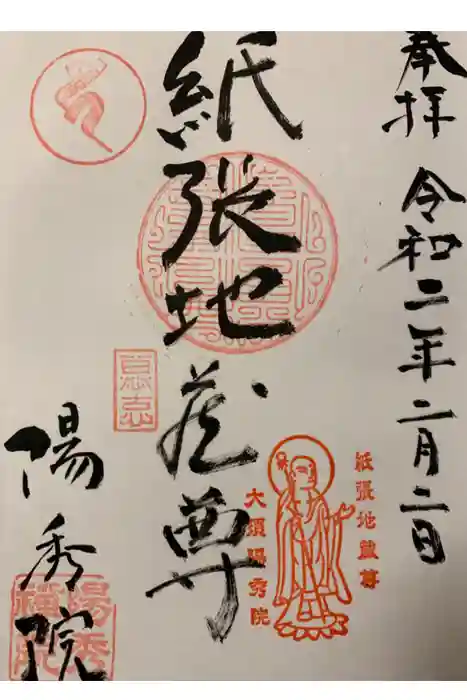 奉拝
令和二年二月二日
紙張地蔵尊
紙張地蔵尊
大須陽秀院
陽秀院